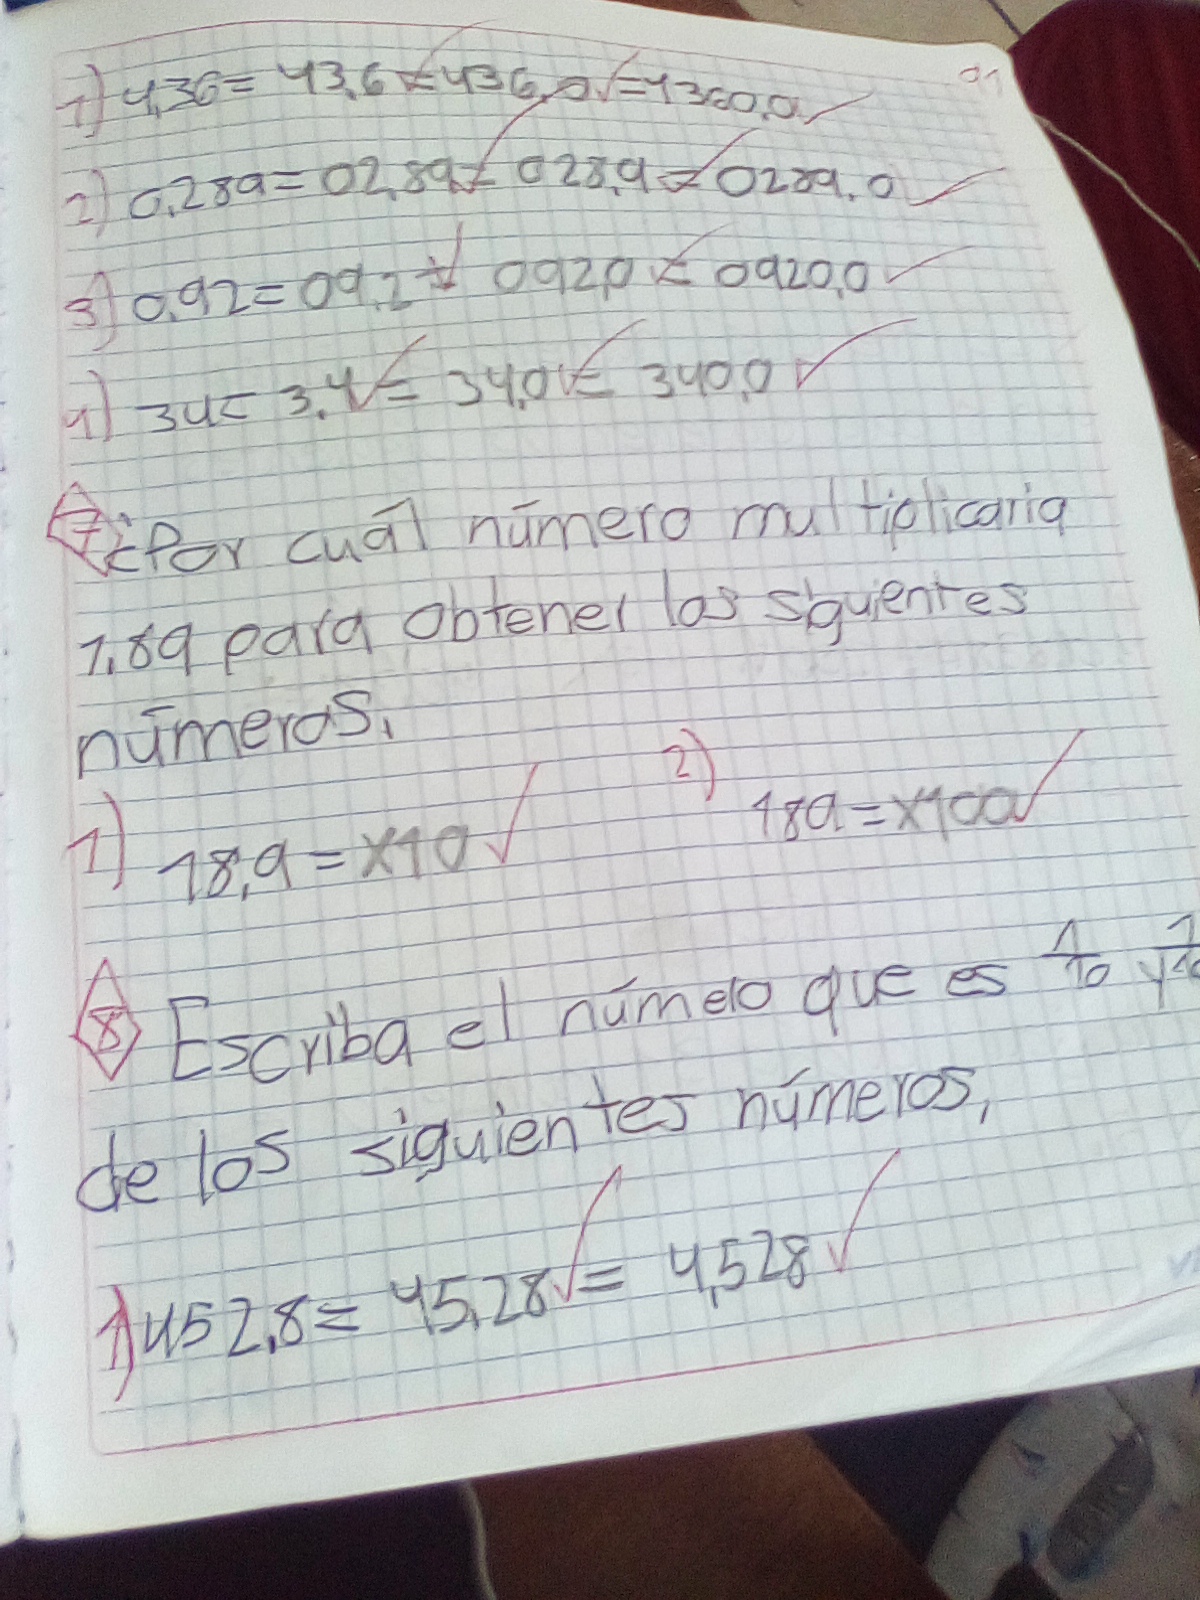 91
1) 4,36= 43,6 = 436,0 = 4360,0
2) 0,289= 02,89 = 028,9 = 0289,0
3) 0,92= 09,2 = 092,0 = 0920,0
4) 34= 3,4 = 34,0 = 340,0
7 ¿Por cuál número multiplicaria
1,89 para obtener los siguientes
números.
1) 18,9 = x10 2) 189 = x100
8 Escriba el número que es 1/10 y
de los siguientes números,
1) 452,8 = 45,28 = 4,528